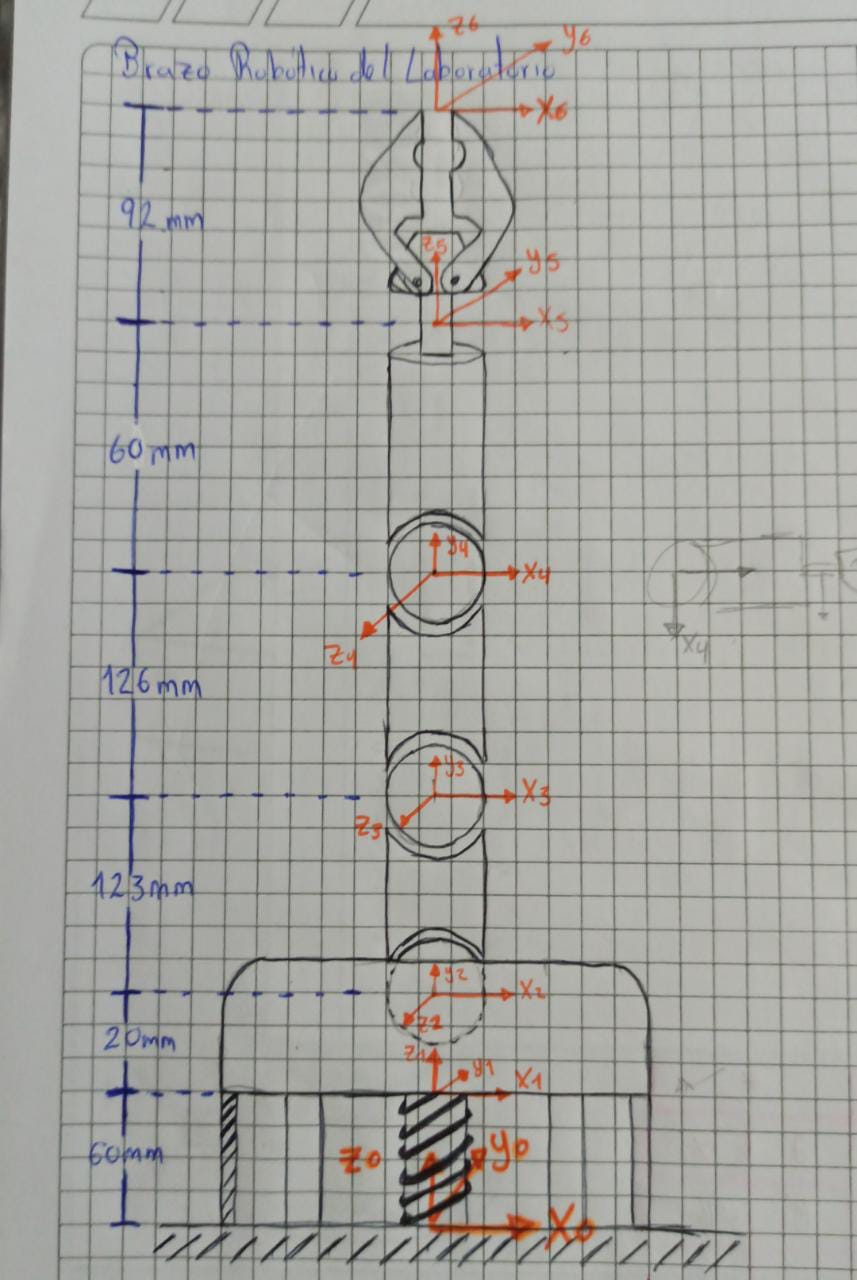 Z6
Y6
Brazo Robótico del Laboratorio
X6
92 mm
Z5
Y5
X5
60 mm
Y4
X4
Z4
X4
126 mm
Y3
X3
Z3
123 mm
Y2
X2
Z2
20 mm
Z1
Y1
X1
60 mm
Z0
Y0
X0